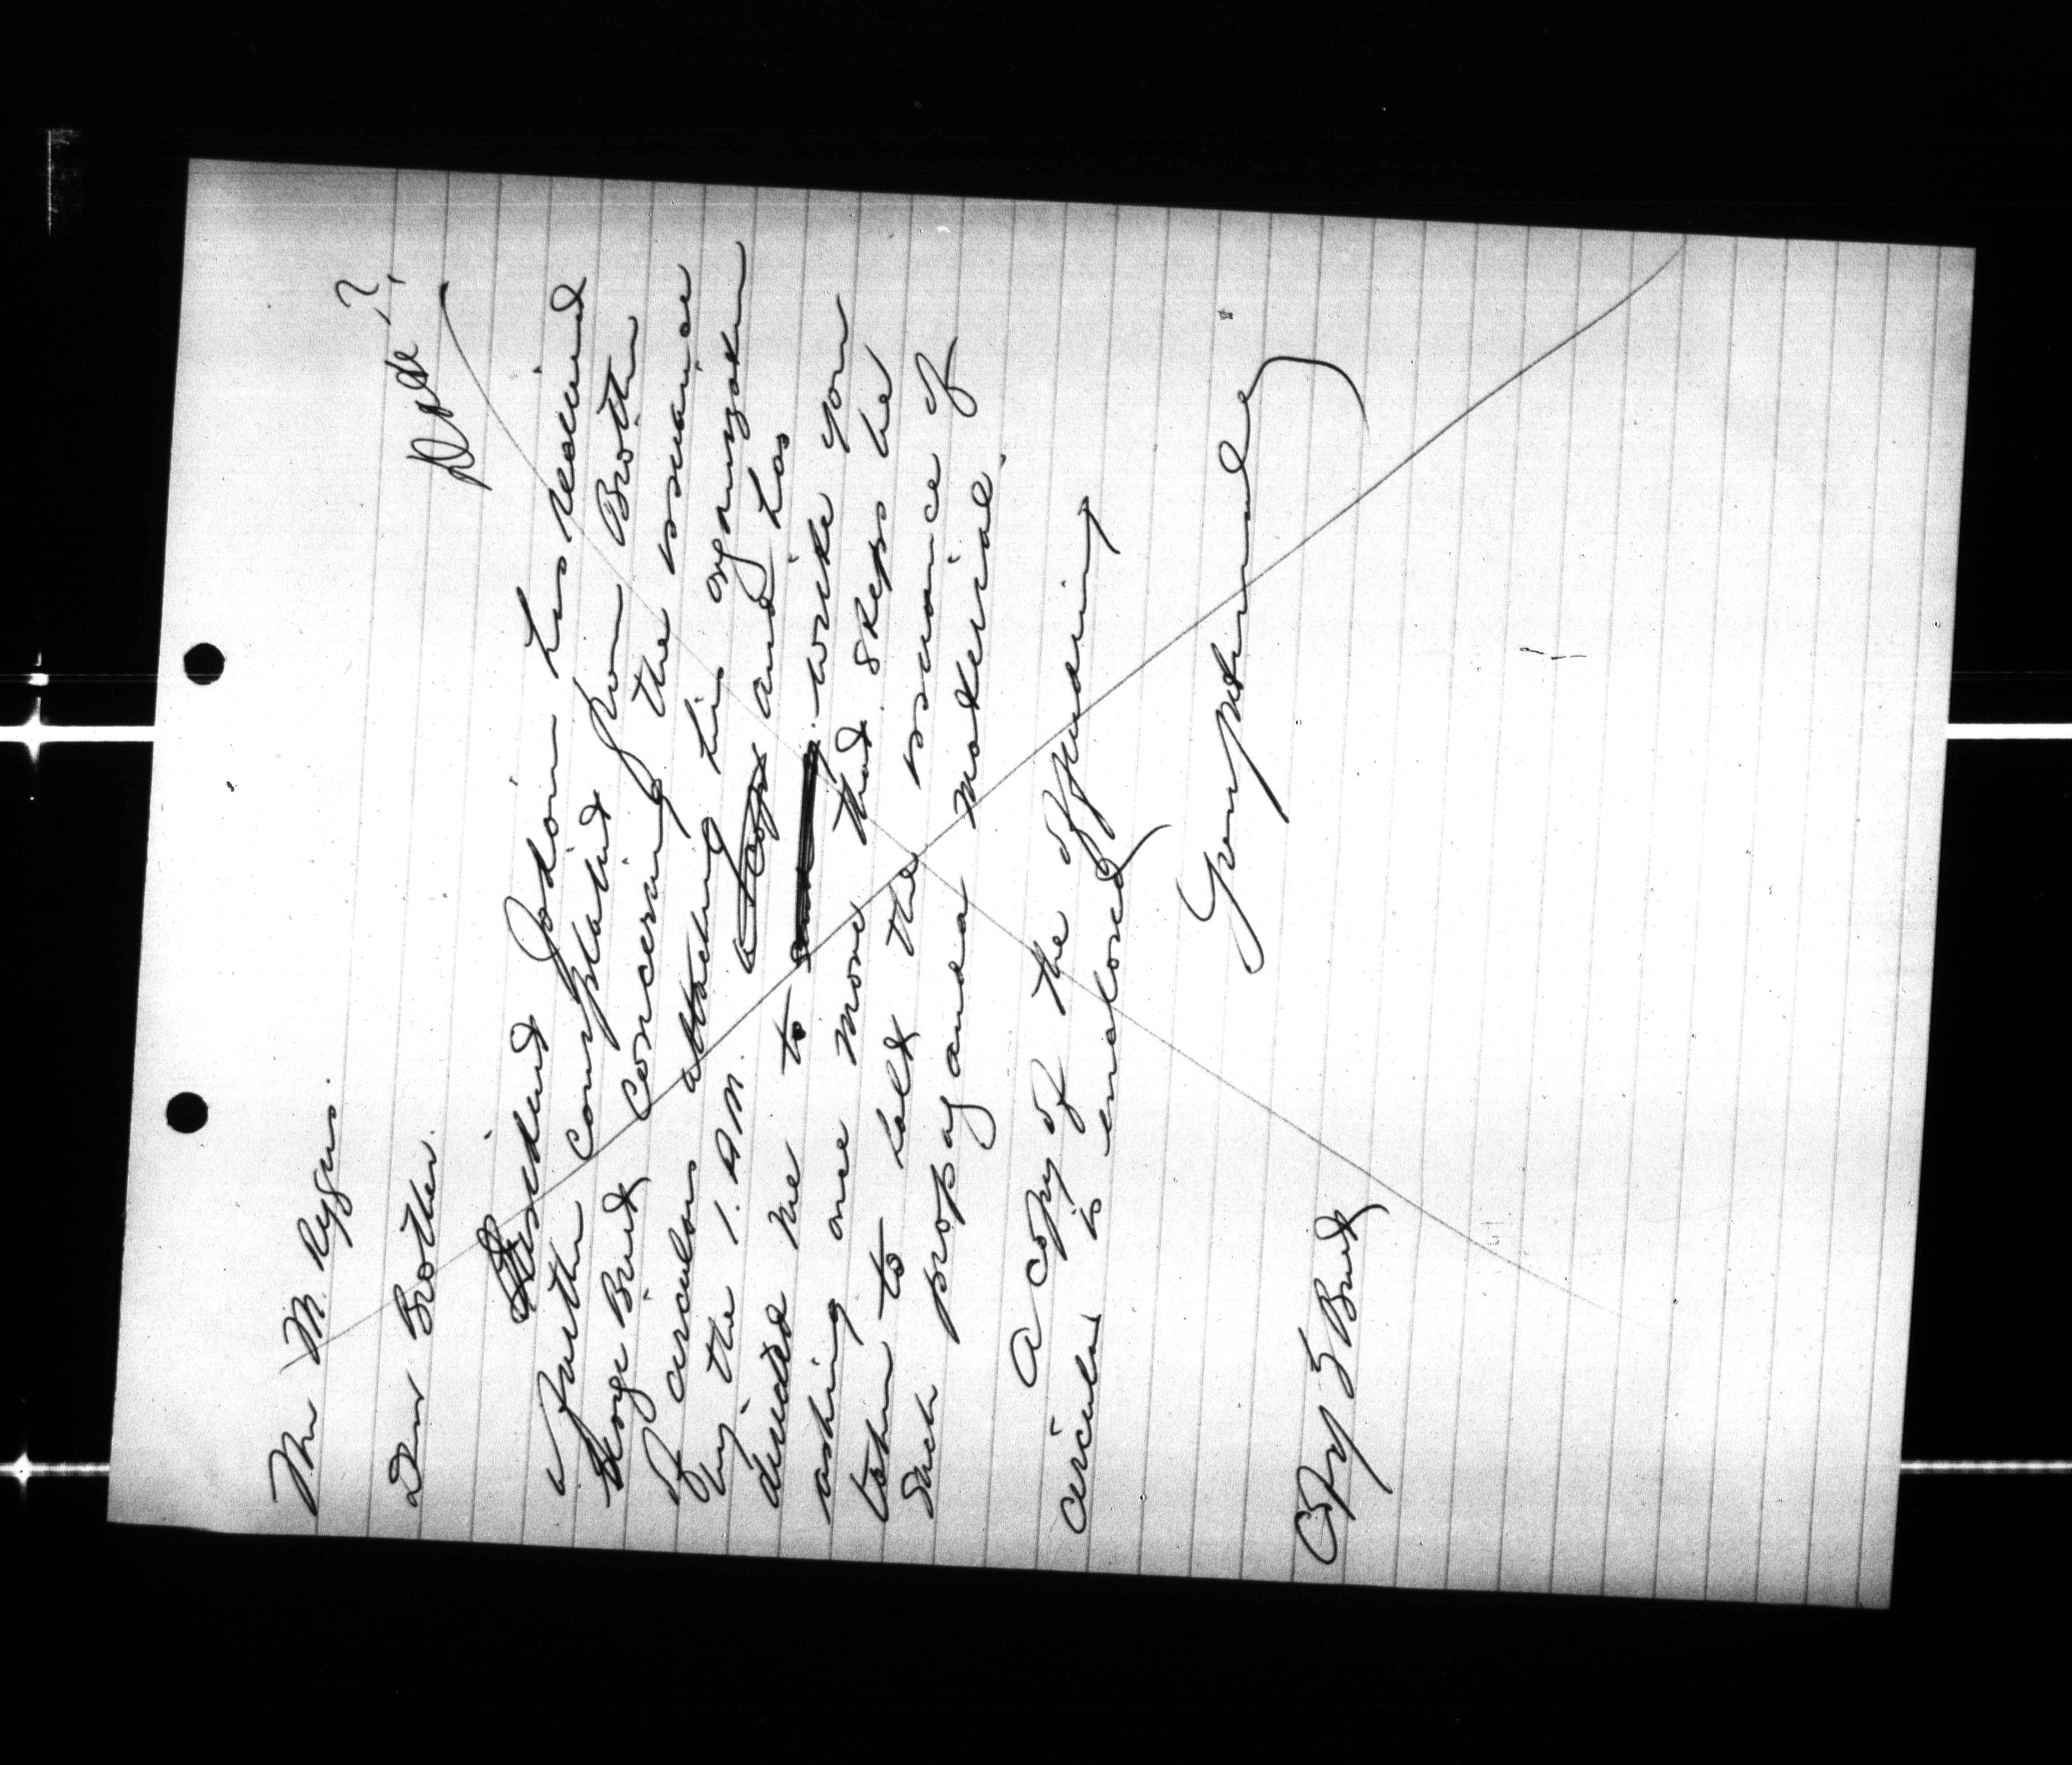 Mr M. Rygus.
Date?
Dear Brother.
President Jodoin has received
a further complaint from Brother
George Burt concerning the issuance
of circulars attacking his organization
by the I.A.M. a copy and has
directed me to write you
asking once more that steps be
taken to halt the issuance of
such propaganda material.
A copy of the offending
circular is enclosed
Yours fraternally
Copy G Burt